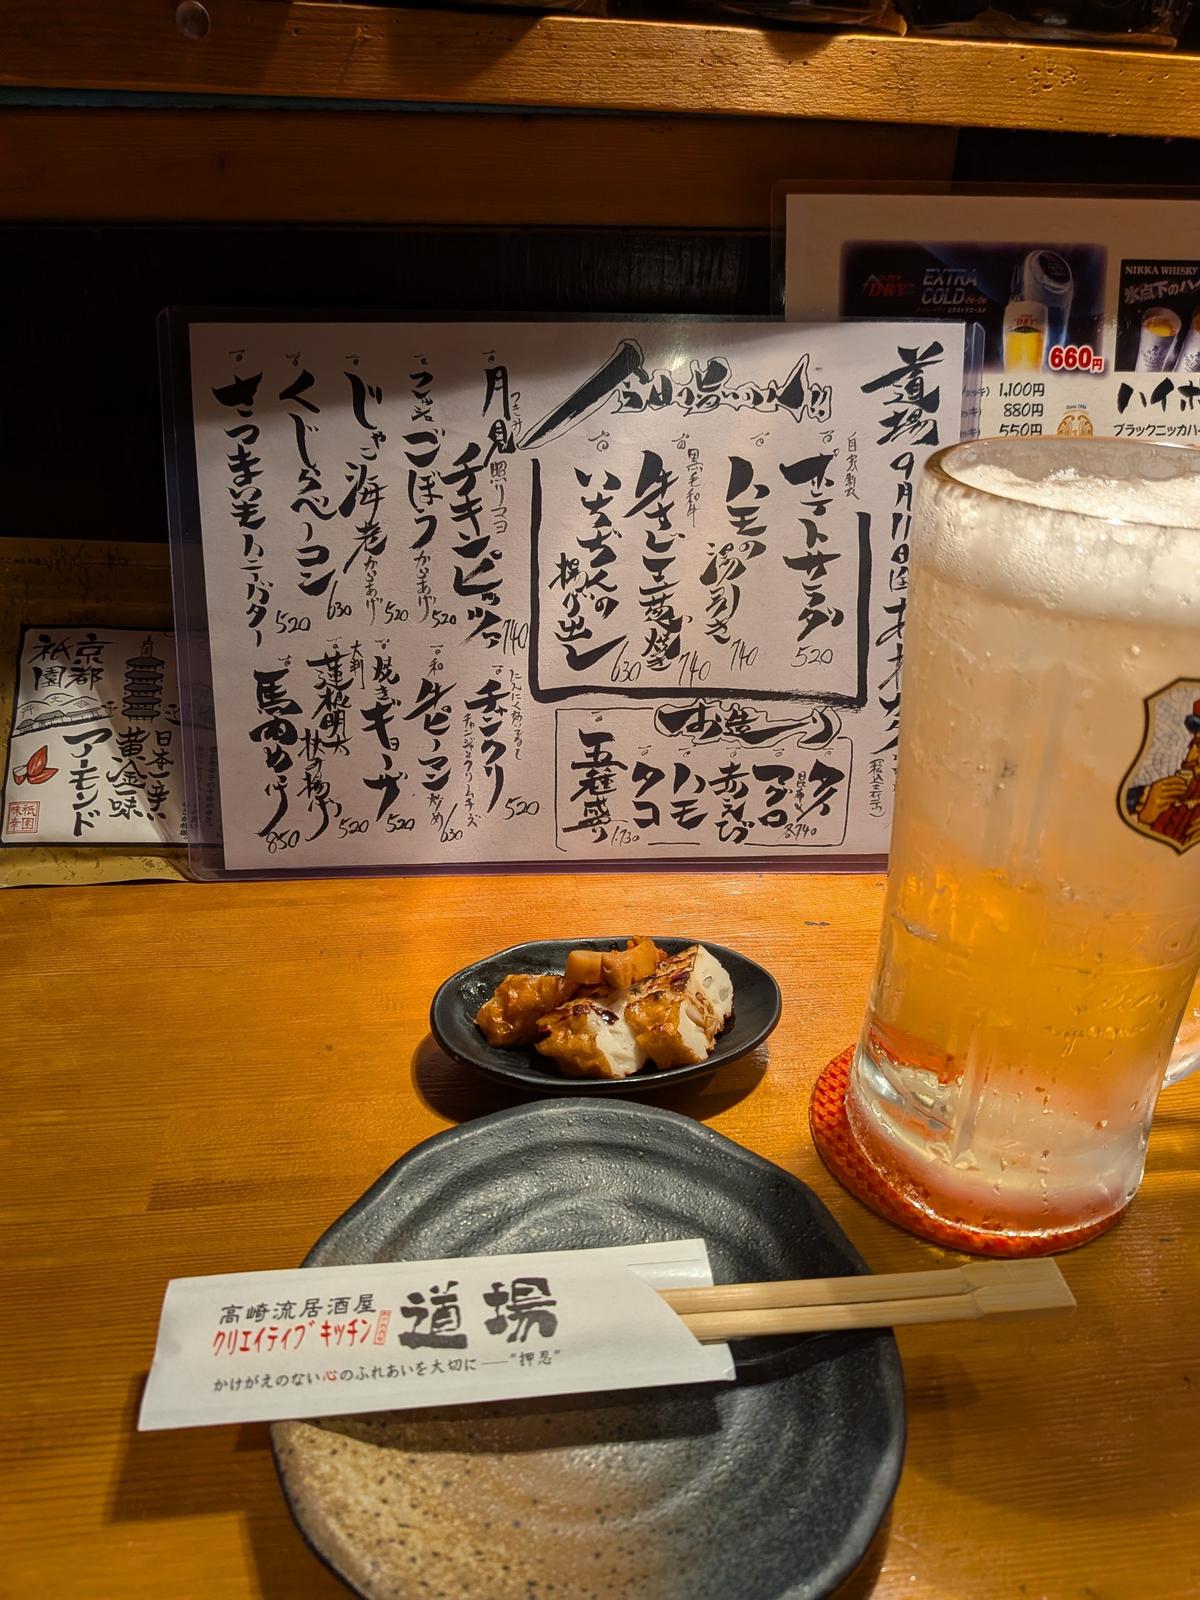 道場
9月11日
おすすめ
自家製
ポテトサラダ
520
ハモの湯引き
740
黒毛和牛
牛すじ煮
740
いちぢくの
揚げ出し
630
お造り
タイ
マグロ
各740
赤えび
ハモ
タコ
五種盛り
1,730
月見
つきみ
照りマヨ
チキンピッツァ
740
ごぼう
からあげ
520
じゃこ海老
からあげ
520
くじらベーコン
630
さつまいもハニーバター
520
チャンクリ
チャンジャクリームチーズ
520
和牛ピーマン
炒め
630
焼きギョーザ
520
大判
蓮根明太
挟み揚げ
520
馬肉めんち
850
EXTRA
COLD
エクストラコールド
DRY
660円
1,100円
880円
550円
NIKKA WHISKY
氷点下のハイ
ハイボ
ブラックニッカハイ
京都
祇園
日本一辛い
黄金一味
アーモンド
祇園
味幸
高崎流居酒屋
クリエイティブキッチン
道場
かけがえのない心のふれあいを大切に――“押忍”